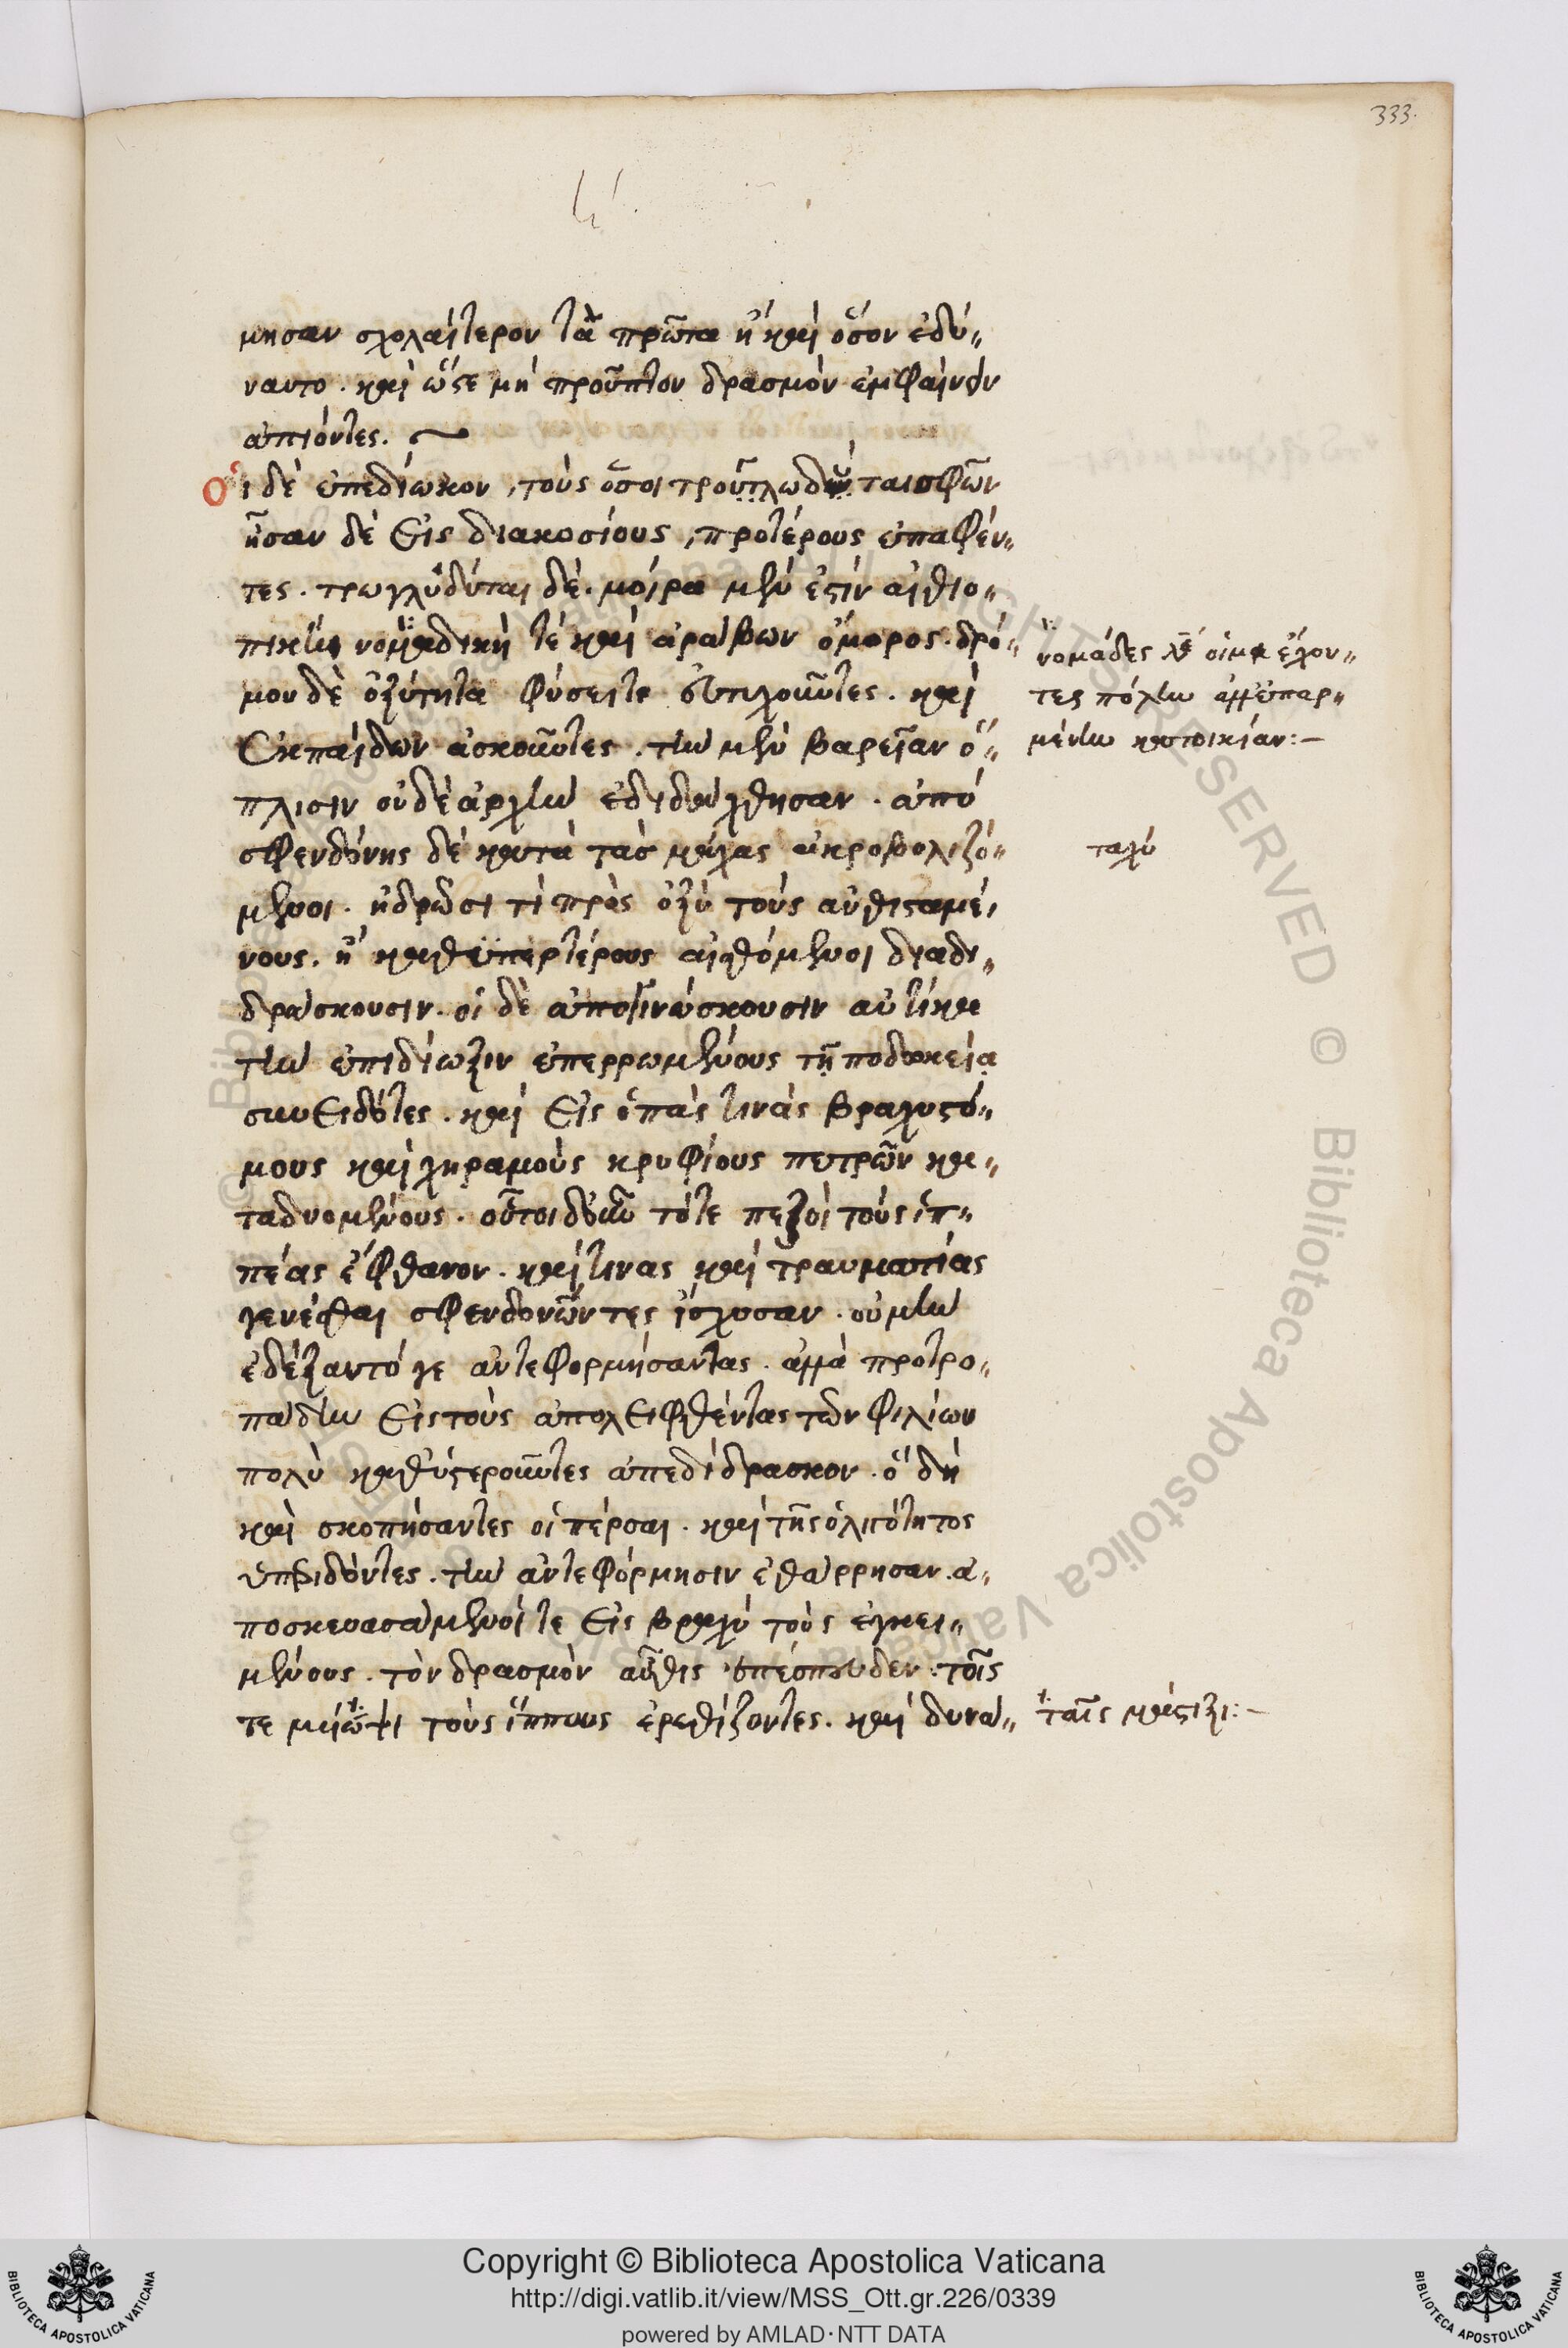 333.
μησαν σχολαίτερον τὰ πρῶτα ἢ καὶ ὅσον ἐδύ„
ναντο. καὶ ὥστε μὴ προῦπτον δρασμὸν ἐμφαίνειν
ἀπιόντες.
Οἱ δὲ ἐπεδίωκον, τοὺς ὅσοι τρωγλωδύται σφῶν
ἦσαν δὲ εἰς διακοσίους, προτέρους ἐπαφέν„
τες. τρωγλυδύται δὲ. μοίρα μὲν ἐστὶν αἰθιο„
πικὴ νομαδική τὲ καὶ ἀράβων ὅμορος. δρό„
μου δὲ ὀξύτητα φύσει τε εὐτυχοῦντες. καὶ
ἐκπαίδων ἀσκοῦντες. τὴν μὲν βαρεῖαν ὅ„
πλισιν οὐδὲ ἀρχὴν ἐδιδάχθησαν. ἀπὸ
σφενδόνης δὲ κατὰ τὰσ μάχας ἀκροβολιζό„
μενοι. ἢ δρῶσι τὶ πρὸς ὀξὺ τοὺς ἀνθισταμέ,
νους. ἢ καθυπερτέρους αἰσθόμενοι διαδι„
δράσκουσιν. οἱ δὲ ἀπογινώσκουσιν αὐτίκα
τὴν ἐπιδίωξιν ἐπερρωμένους τῇ ποδωκείᾳ
συνειδότες. καὶ εἰς ὀπάς τινὰς βραχυστό„
μους καὶ χηραμοὺς κρυφίους πετρῶν κα„
ταδυομένους. οὗτοι δ᾽ οὖν τότε πεζοὶ τοὺς ἱπ„
πέας ἔφθανον. καί τινας καὶ τραυματίας
γενέσθαι σφενδονῶντες ἴσχυσαν. οὐ μὴν
ἐδέξαντό γε ἀντεφορμήσαντας. ἀλλὰ προτρο„
πάδην εἰς τοὺς ἀπολειφθέντας τῶν φιλίων
πολὺ καθυστεροῦντες ἀπεδίδρασκον. ὃ δὴ
καὶ σκοπήσαντες οἱ πέρσαι. καὶ τῆς ὀλιγότητος
ὑπειδόντες. τὴν ἀντεφόρμησιν ἐθάρρησαν. ἀ„
ποσκευασάμενοί τε εἰς βραχὺ τοὺς ἐγκει„
μένους. τὸν δρασμὸν αὖθις ὑπέσπευδεν. τοῖς
τε μύωψι τοὺς ἵππους ἐρεθίζοντες. καὶ δυνά„
νομάδες λέγονται οἱ μὴ ἔχον„
τες πόλιν ἀλλ᾽ ἐπαρ„
μένην κατοικίαν:–
ταχύ
ταῖς μάστιξι:–
Copyright © Biblioteca Apostolica Vaticana
http://digi.vatlib.it/view/MSS_Ott.gr.226/0339
powered by AMLAD·NTT DATA